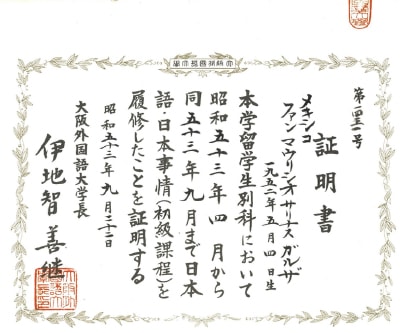 証明書
メキシコ
ファン マウリシオ サリナス ガルザ
一九五二年五月四日生
本学留学生別科において
昭和五十三年四月から
同五十三年九月まで日本
語・日本事情(初級課程)を
履修したことを証明する
昭和五十三年九月三十日
大阪外国語大学長
伊地智善継